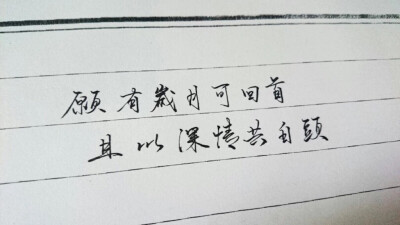 愿有歲月可回首
且以深情共白頭